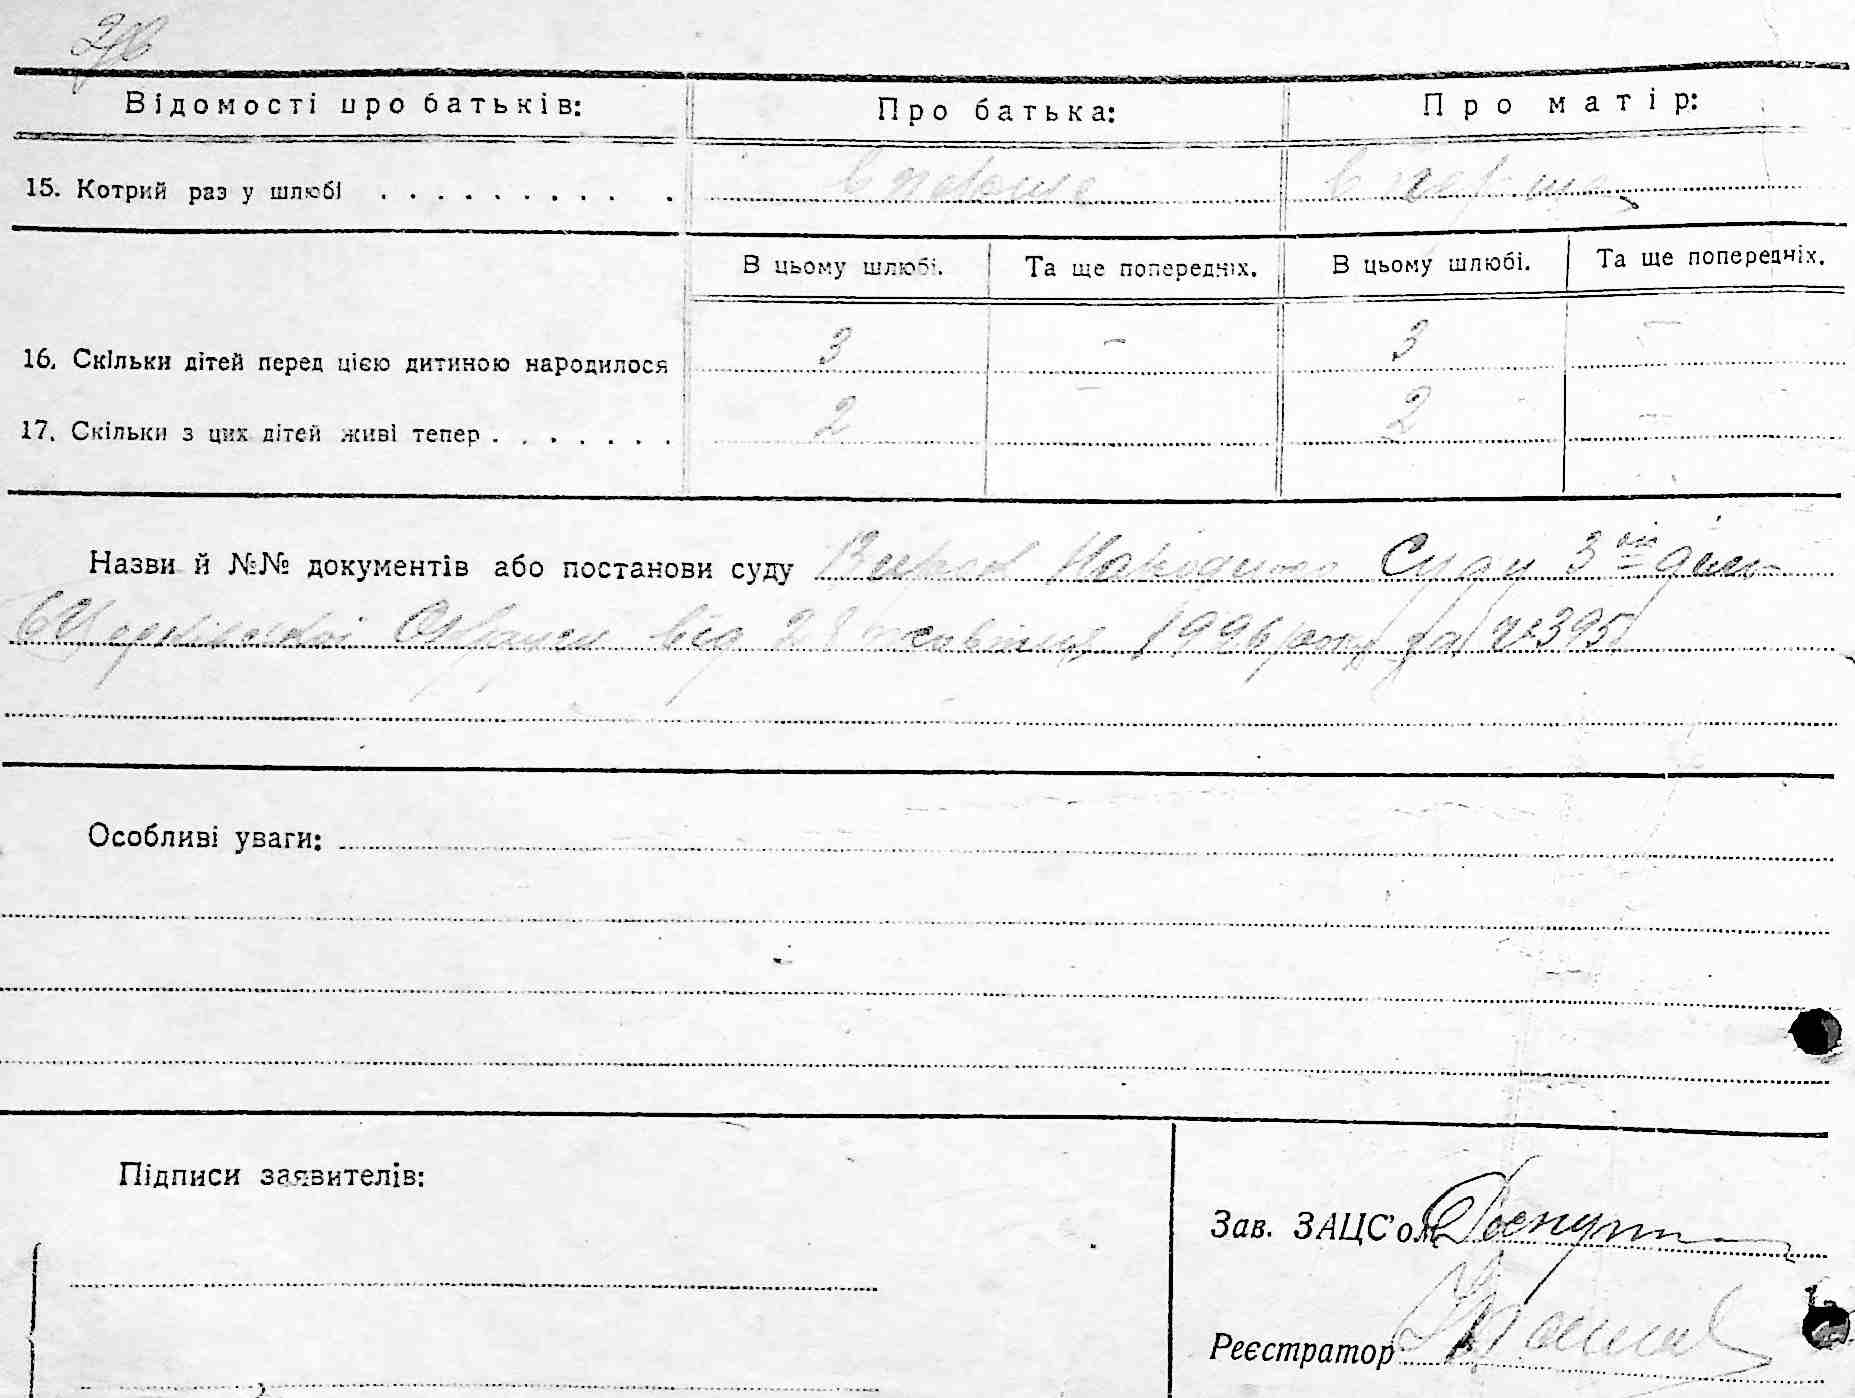 Відомості про батьків: Про батька: Про матір:
15. Котрий раз у шлюбі . . . . . . . . . . . вперше вперше
В цьому шлюбі. Та ще попередніх. В цьому шлюбі. Та ще попередніх.
16. Скільки дітей перед цією дитиною народилося 3 – 3 –
17. Скільки з цих дітей живі тепер . . . . . . . 2 – 2 –
Назви й №№ документів або постанови суду Народного Суду 3
Округи від 28 жовтня 1926 року за № 395
Особливі уваги:
Підписи заявителів:
Зав. ЗАЦС'ом
Реєстратор